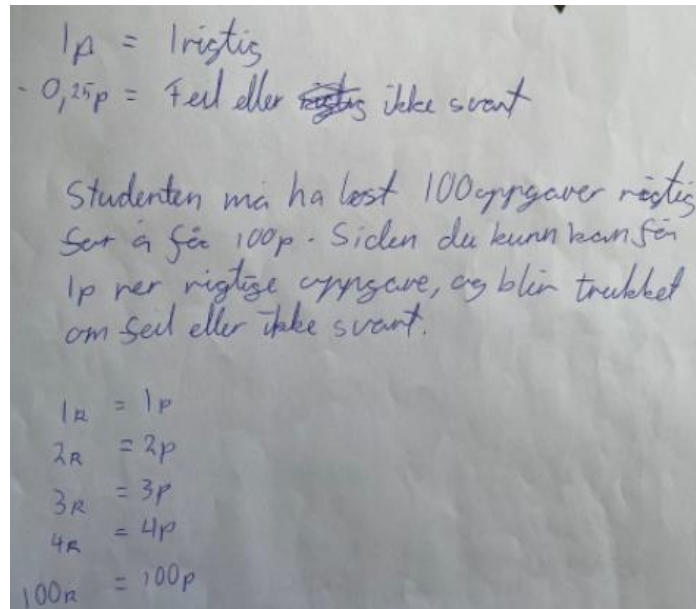 1p = 1 rigtig
- 0,25p = Feil eller ikke svart
Studenten må ha løst 100 oppgaver rigtig
for å få 100p. Siden du kunn kan få
1p per rigtige oppgave, og blir trukket
om feil eller ikke svart.
1R = 1p
2R = 2p
3R = 3p
4R = 4p
100R = 100p